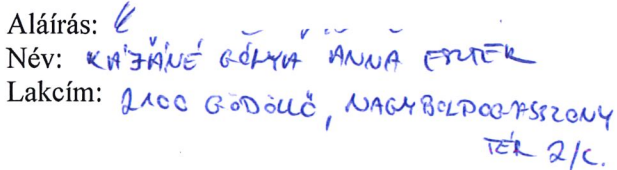 Aláírás:
Név: KAJÁNÉ GÓLYA ANNA ESZTER
Lakcím: 2100 GÖDÖLLŐ, NAGYBOLDOGASSZONY
TÉR 2/C.